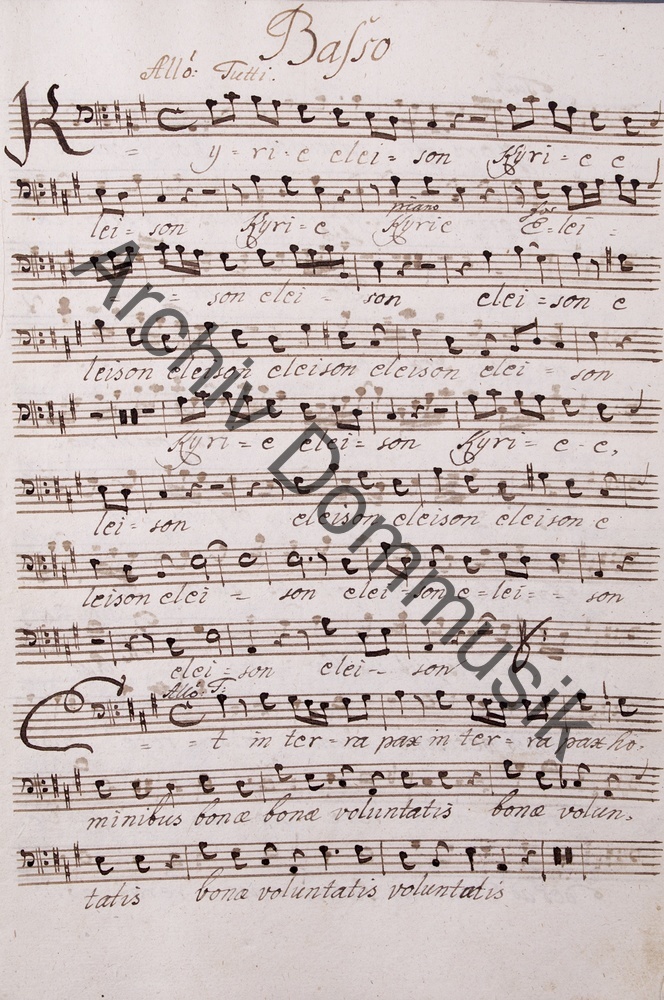 Basso
Allo: Tutti.
K = y = ri = e elei = son Kyri = e e
lei = son Kyri = e Kyrie e = lei =
piano
= = son elei = son elei = son e
leison eleison eleison eleison elei = son
Kyri = e elei = son Kyri = e e,
lei = son eleison eleison eleison e
leison elei = son elei = son e = lei = = son
elei = son elei = son
Allo: T:
E = = t in ter = ra pax in ter = ra pax ho,
minibus bonæ bonæ voluntatis bonæ volun,
tatis bonæ voluntatis voluntatis
Archiv Dommusik